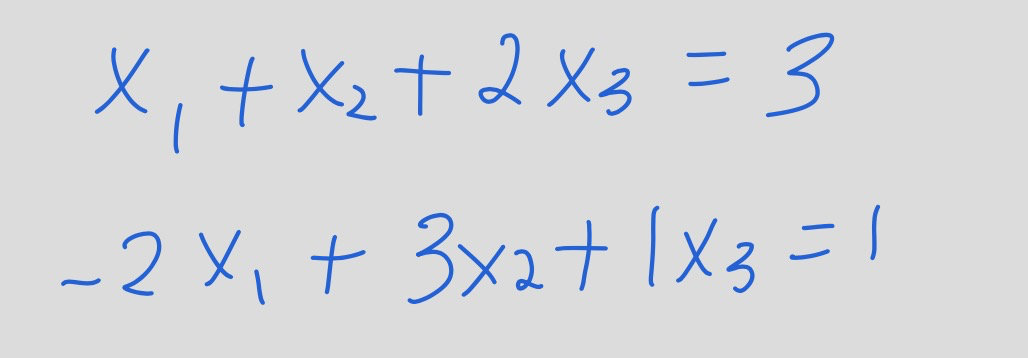 x₁ + x₂ + 2x₃ = 3
-2x₁ + 3x₂ + 1x₃ = 1